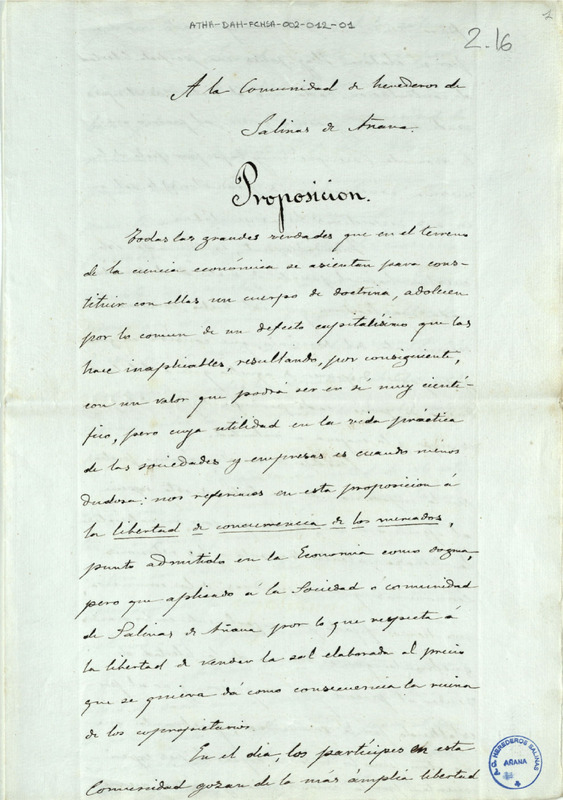 ATHA-DAH-FCHSA-002-012-01
2.16
A la Comunidad de herederos de
Salinas de Añana.
Proposicion.
Todas las grandes verdades que en el terreno
de la ciencia económica se asientan para cons-
tituir con ellas un cuerpo de doctrina, adolecen
por lo comun de un defecto capitalísimo que las
hace inaplicables, resultando, por consiguiente,
con un valor que podrá ser en sí muy cientí-
fico, pero cuya utilidad en la vida práctica
de las sociedades y empresas es cuando menos
dudosa: nos referimos en esta proposicion á
la libertad de concurrencia de los mercados,
punto admitido en la Economía como dogma,
pero que aplicado á la Sociedad ó comunidad
de Salinas de Añana por lo que respecta á
la libertad de vender la sal elaborada al precio
que se quiera dá como consecuencia la ruina
de los coproprietarios.
En el dia, los partícipes en esta
Comunidad gozan de la más amplia libertad
HEREDEROS SALINAS
AÑANA